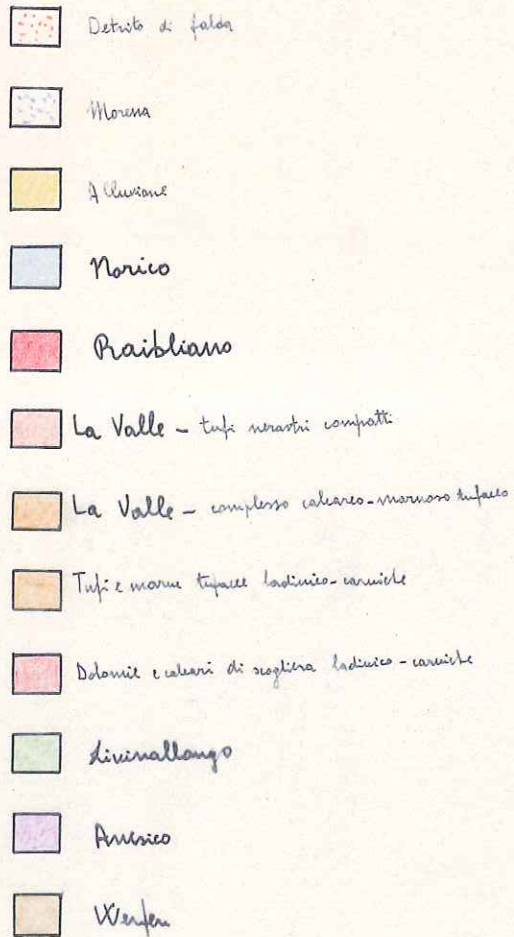 Detrito di falda
Morena
Alluvione
Norico
Raibliano
La Valle - tufi nerastri compatti
La Valle - complesso calcareo-marnoso tufaceo
Tufi e marne tufacee ladinico-carniche
Dolomie e calcari di scogliera ladinico-carniche
Livinallongo
Anisico
Werfen